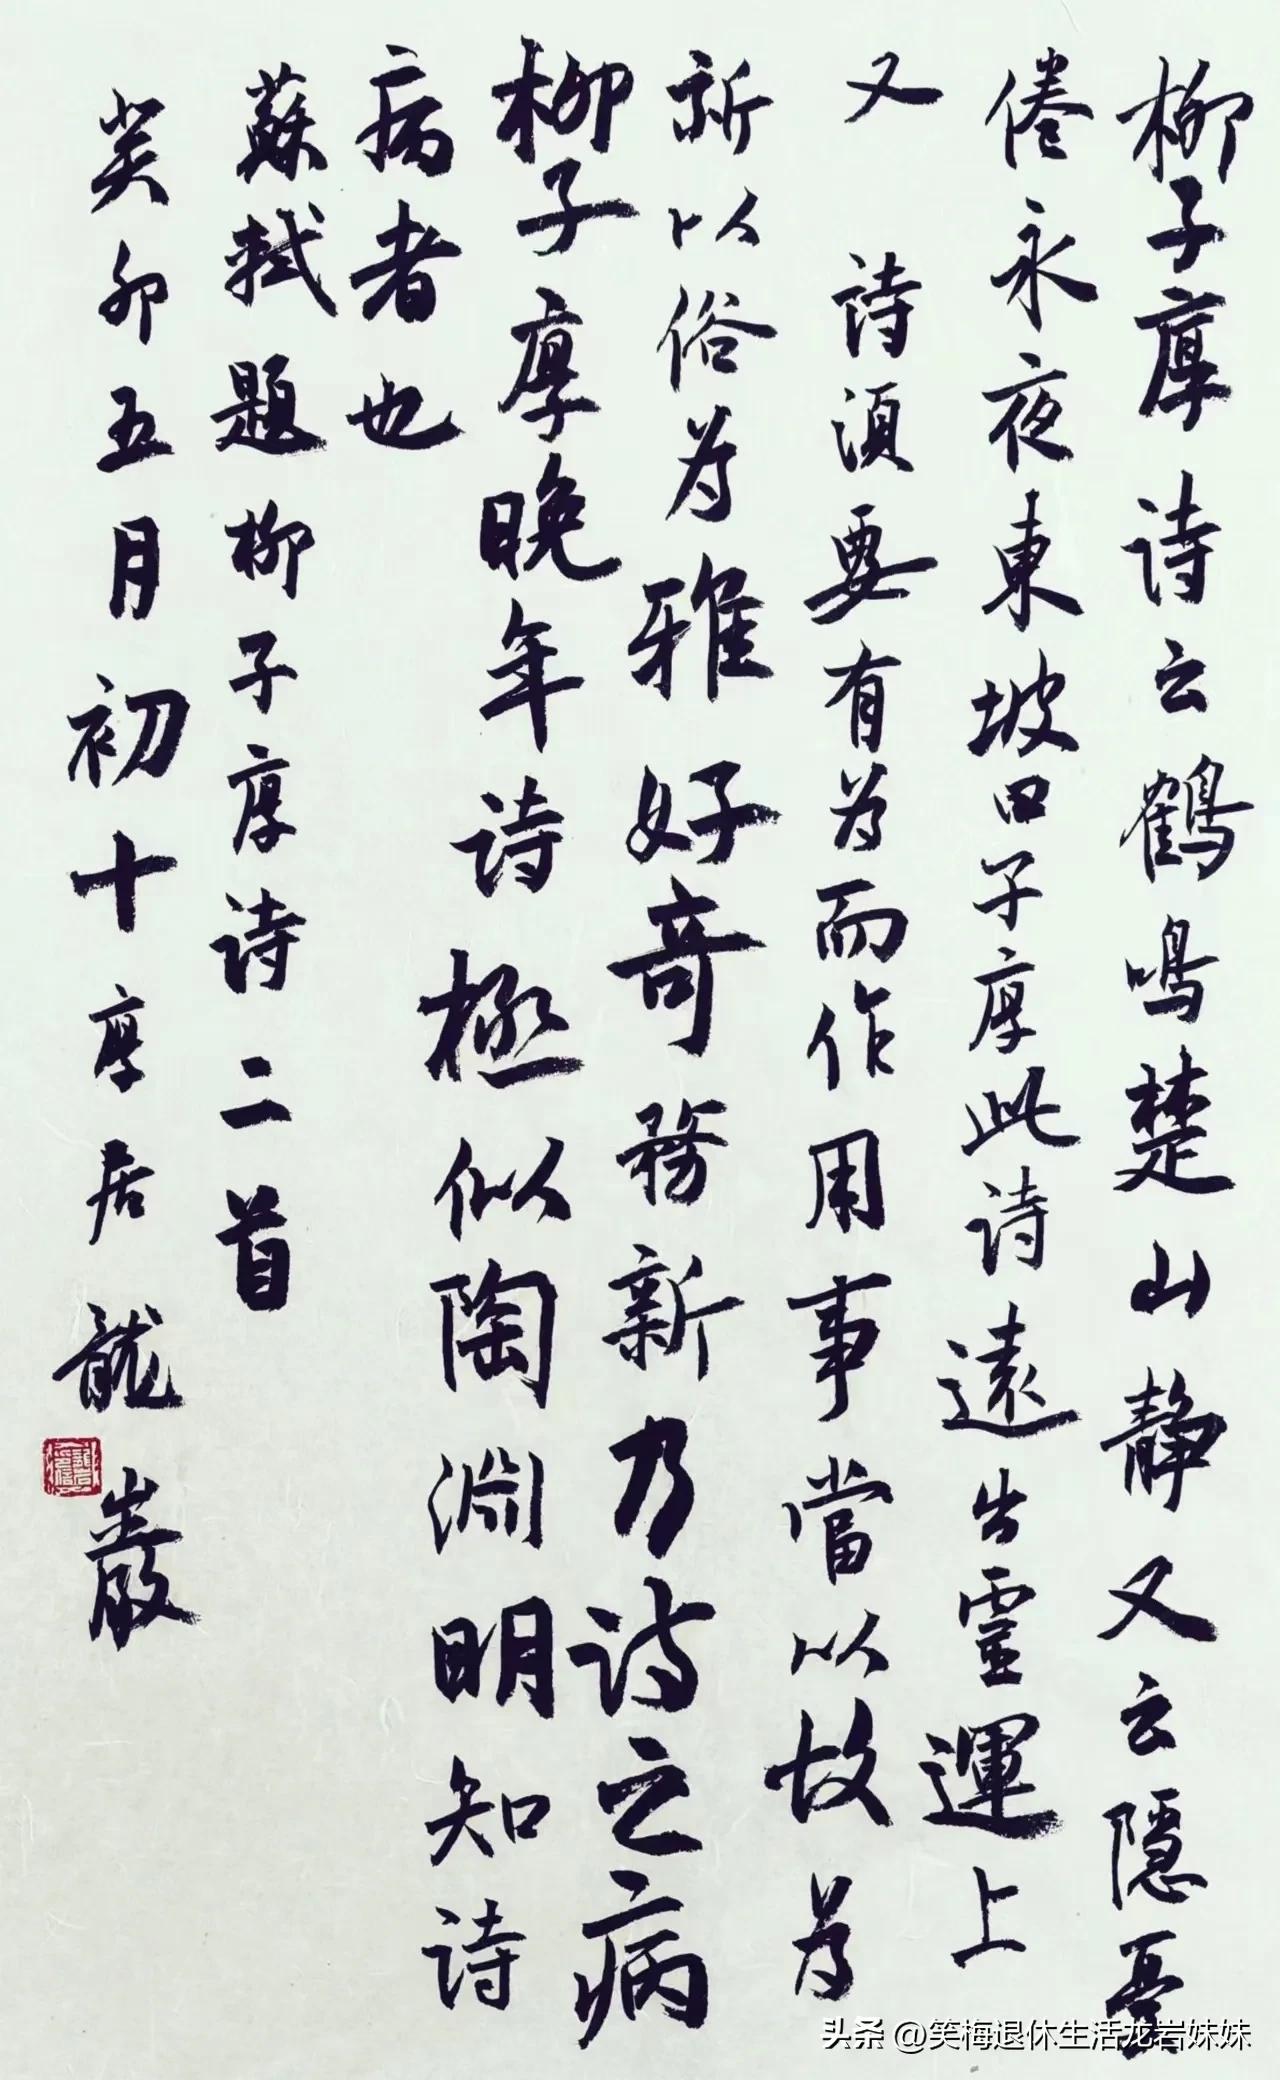 柳子厚诗云鶴鸣楚山静又云隱憂
倦永夜東坡曰子厚此诗遠出靈運上
又 诗須要有为而作用事當以故为
新以俗为雅好奇務新乃诗之病
柳子厚晚年诗極似陶淵明知诗
病者也
蘇軾題柳子厚诗二首
癸卯五月初十厚居龍巖
头条 @笑梅退休生活龙岩妹妹